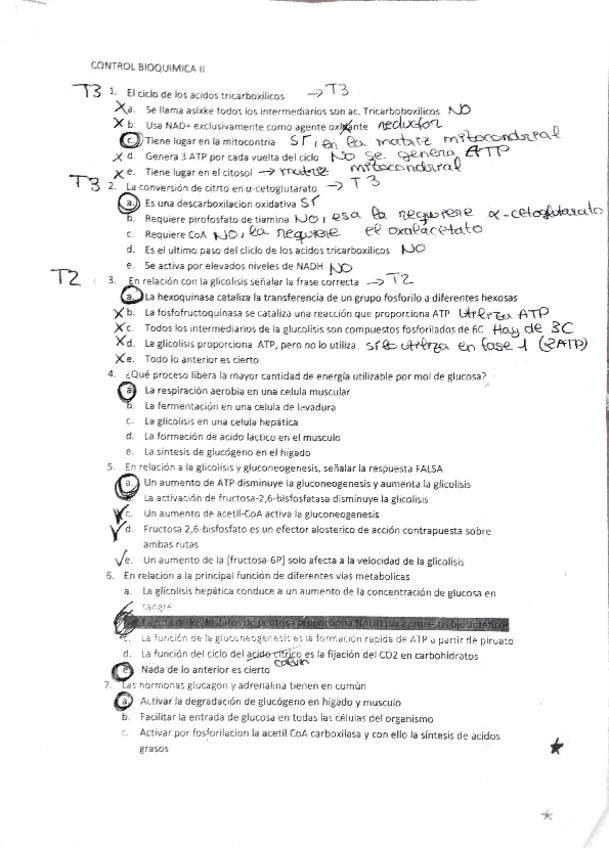 CONTROL BIOQUIMICA II
T3 1. El ciclo de los acidos tricarboxilicos → T3
X a. Se llama asixke todos los intermediarios son ac. Tricarboboxilicos NO
X b. Usa NAD+ exclusivamente como agente oxidante reductor
c. Tiene lugar en la mitocontria SI, en la matriz mitocondrial
X d. Genera 3 ATP por cada vuelta del ciclo NO se genera ATP
X e. Tiene lugar en el citosol → matriz mitocondrial
T3 2. La conversión de citrto en α-cetoglutarato → T3
a. Es una descarboxilacion oxidativa SI
b. Requiere pirofosfato de tiamina NO, esa la requiere α-cetoglutarato
c. Requiere CoA NO, la requiere el oxalacetato
d. Es el ultimo paso del cliclo de los acidos tricarboxilicos NO
e. Se activa por elevados niveles de NADH NO
T2 3. En relación con la glicolisis señalar la frase correcta → T2
a. La hexoquinasa cataliza la transferencia de un grupo fosforilo a diferentes hexosas
X b. La fosfofructoquinasa se cataliza una reacción que proporciona ATP Utiliza ATP
X c. Todos los intermediarios de la glucolisis son compuestos fosforilados de 6C Hay de 3C
X d. La glicolisis proporciona ATP, pero no lo utiliza sí lo utiliza en fase 1 (2ATP)
X e. Todo lo anterior es cierto
4. ¿Qué proceso libera la mayor cantidad de energía utilizable por mol de glucosa?
a. La respiración aerobia en una celula muscular
b. La fermentación en una celula de levadura
c. La glicolisis en una celula hepática
d. La formación de acido láctico en el musculo
e. La síntesis de glucógeno en el hígado
5. En relación a la glicolisis y gluconeogenesis, señalar la respuesta FALSA
a. Un aumento de ATP disminuye la gluconeogenesis y aumenta la glicolisis
La activación de fructosa-2,6-bisfosfatasa disminuye la glicolisis
c. Un aumento de acetil-CoA activa la gluconeogenesis
d. Fructosa 2,6-bisfosfato es un efector alosterico de acción contrapuesta sobre
ambas rutas
e. Un aumento de la [fructosa-6P] solo afecta a la velocidad de la glicolisis
6. En relación a la principal función de diferentes vias metabolicas
a. La glicolisis hepática conduce a un aumento de la concentración de glucosa en
sangre
c. La función de la gluconeogenesis es la formación rapida de ATP a partir de piruato
d. La función del ciclo del acido cítrico es la fijación del CO2 en carbohidratos
e. Nada de lo anterior es cierto
7. Las hormonas glucagon y adrenalina tienen en cumún
a. Activar la degradación de glucógeno en hígado y musculo
b. Facilitar la entrada de glucosa en todas las células del organismo
c. Activar por fosforilacion la acetil CoA carboxilasa y con ello la síntesis de acidos
grasos